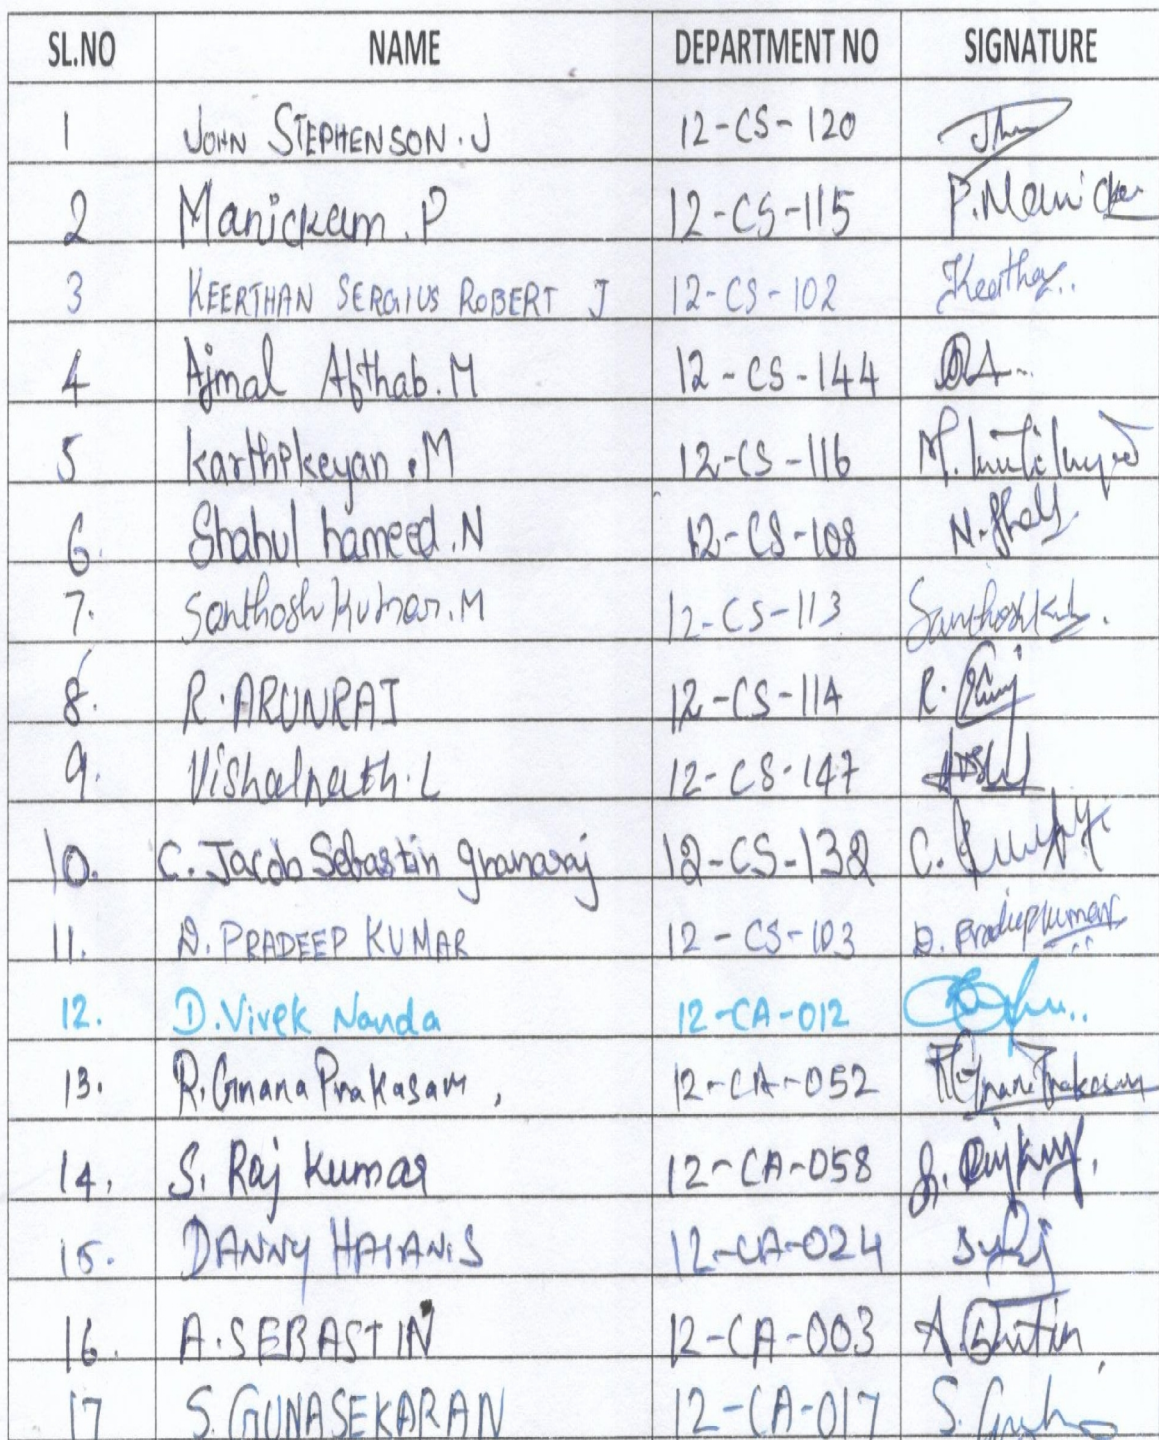 SL.NO NAME DEPARTMENT NO SIGNATURE
1 JOHN STEPHENSON.J 12-CS-120
2 Manickam.P 12-CS-115 P.Manickam
3 KEERTHAN SERGIUS ROBERT J 12-CS-102 Keerthan..
4 Ajmal Afthab.M 12-CS-144
5 karthikeyan.M 12-CS-116
6. Shahul hameed.N 12-CS-108
7. Santhosh Kumar.M 12-CS-113
8. R.ARUNRAJ 12-CS-114 R.
9. Vishalnath.L 12-CS-147
10. C. Jacob Sebastin gnanaraj 12-CS-132 C.
11. D. PRADEEP KUMAR 12-CS-103 D. Pradeepkumar
12. D.Vivek Nanda 12-CA-012
13. R.Gnana Prakasam, 12-CA-052 R.Gnana Prakasam
14. S. Raj kumar 12-CA-058
15. DANNY HAIAN.S 12-CA-024
16. A.SEBASTIN 12-CA-003
17 S.GUNASEKARAN 12-CA-017